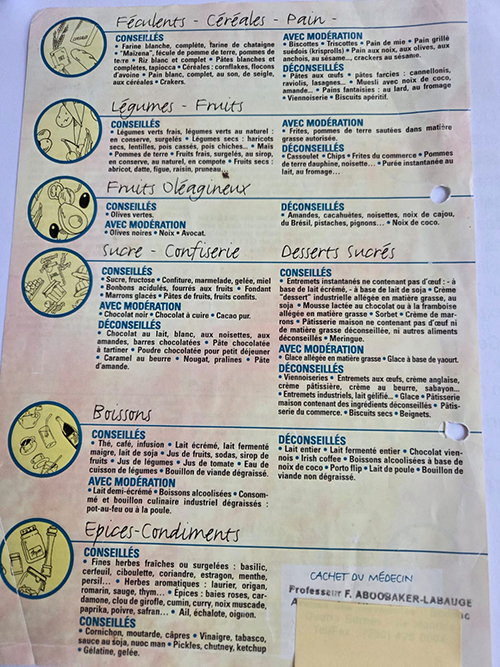 Féculents - Céréales - Pain -
CONSEILLÉS
• Farine blanche, complète, farine de chataigne
• "Maïzena", fécule de pomme de terre, pommes de
terre • Riz blanc et complet • Pâtes blanches et
complètes, tapiocca • Céréales : cornflakes, flocons
d'avoine • Pain blanc, complet, au son, de seigle,
aux céréales • Crakers.
AVEC MODÉRATION
• Biscottes • Triscottes • Pain de mie • Pain grillé
suédois (krisprolls) • Pain aux noix, aux olives, aux
anchois, au sésame..., crackers au sésame.
DÉCONSEILLÉS
• Pâtes aux œufs • pâtes farcies : cannellonis,
raviolis, lasagnes... • Muesli avec noix de coco,
amande... • Pains fantaisies : au lard, au fromage
• Viennoiserie • Biscuits apéritif.
Légumes - Fruits
CONSEILLÉS
• Légumes verts frais, légumes verts au naturel :
en conserve, surgelés • Légumes secs : haricots
secs, lentilles, pois cassés, pois chiches... • Maïs
• Pommes de terre • Fruits frais, surgelés, au sirop,
en conserve, au naturel, en compote • Fruits secs :
abricot, datte, figue, raisin, pruneau...
AVEC MODÉRATION
• Frites, pommes de terre sautées dans matière
grasse autorisée.
DÉCONSEILLÉS
• Cassoulet • Chips • Frites du commerce • Pommes
de terre dauphine, noisette... • Purée instantanée au
lait, au fromage...
Fruits Oléagineux
CONSEILLÉS
• Olives vertes.
AVEC MODÉRATION
• Olives noires • Noix • Avocat.
DÉCONSEILLÉS
• Amandes, cacahuètes, noisettes, noix de cajou,
du Brésil, pistaches, pignons... • Noix de coco.
Sucre - Confiserie
CONSEILLÉS
• Sucre, fructose • Confiture, marmelade, gelée, miel
• Bonbons acidulés, fourrés aux fruits • Fondant
• Marrons glacés • Pâtes de fruits, fruits confits.
AVEC MODÉRATION
• Chocolat noir • Chocolat à cuire • Cacao pur.
DÉCONSEILLÉS
• Chocolat au lait, blanc, aux noisettes, aux
amandes, barres chocolatées • Pâte chocolatée
à tartiner • Poudre chocolatée pour petit déjeuner
• Caramel au beurre • Nougat, pralines • Pâte
d'amande.
Desserts Sucrés
CONSEILLÉS
• Entremets instantanés ne contenant pas d'œuf : - à
base de lait écrémé, - à base de lait de soja • Crème
"dessert" industrielle allégée en matière grasse, au
soja • Mousse lactée au chocolat ou à la framboise
allégée en matière grasse • Sorbet • Crème de mar-
rons • Pâtisserie maison ne contenant pas d'œuf ni
de matière grasse déconseillée, ni autres aliments
déconseillés • Meringue.
AVEC MODÉRATION
• Glace allégée en matière grasse • Glace à base de yaourt.
DÉCONSEILLÉS
• Viennoiseries • Entremets aux œufs, crème anglaise,
crème pâtissière, crème au beurre, sabayon...
• Entremets industriels, lait gélifié... • Glace • Pâtisserie
maison contenant des ingrédients déconseillés • Pâtis-
serie du commerce. • Biscuits secs • Beignets.
Boissons
CONSEILLÉS
• Thé, café, infusion • Lait écrémé, lait fermenté
maigre, lait de soja • Jus de fruits, sodas, sirop de
fruits • Jus de légumes • Jus de tomate • Eau de
cuisson de légumes • Bouillon de viande dégraissé.
AVEC MODÉRATION
• Lait demi-écrémé • Boissons alcoolisées • Consom-
mé et bouillon culinaire industriel dégraissés :
pot-au-feu ou à la poule.
DÉCONSEILLÉS
• Lait entier • Lait fermenté entier • Chocolat vien-
nois • Irish coffee • Boissons alcoolisées à base de
noix de coco • Porto flip • Lait de poule • Bouillon de
viande non dégraissé.
Epices-Condiments
CONSEILLÉS
• Fines herbes fraîches ou surgelées : basilic,
cerfeuil, ciboulette, coriandre, estragon, menthe,
persil... • Herbes aromatiques : laurier, origan,
romarin, sauge, thym... • Épices : baies roses, car-
damone, clou de girofle, cumin, curry, noix muscade,
paprika, poivre, safran... • Ail, échalote, oignon.
CONSEILLÉS
• Cornichon, moutarde, câpres • Vinaigre, tabasco,
sauce au soja, nuoc man • Pickles, chutney, ketchup
• Gélatine, gelée.
CACHET DU MÉDECIN
Professeur F. ABOOBAKER-LABAUGE